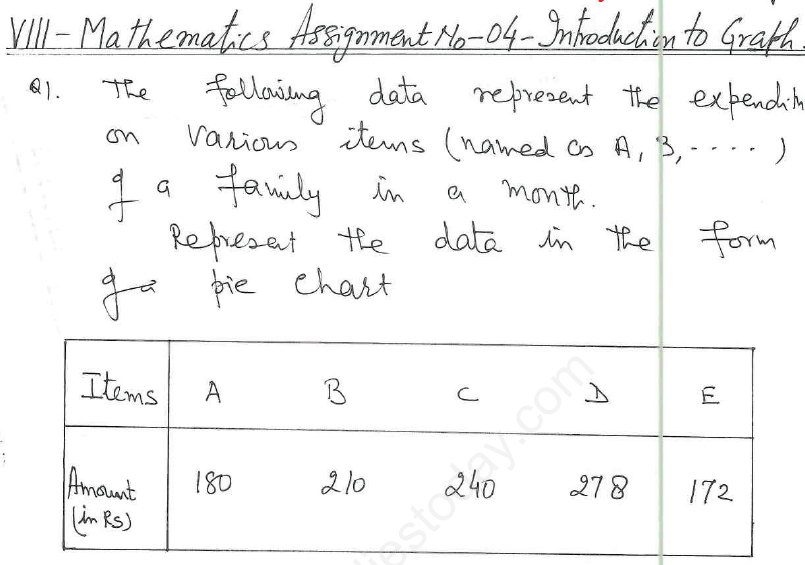 VIII - Mathematics Assignment No-04 - Introduction to Graph.
Q1. The following data represent the expenditu
on various items (named as A, B, - - - - )
of a family in a month.
Represent the data in the form
of a pie chart
Items A B C D E
Amount (in Rs) 180 210 240 278 172